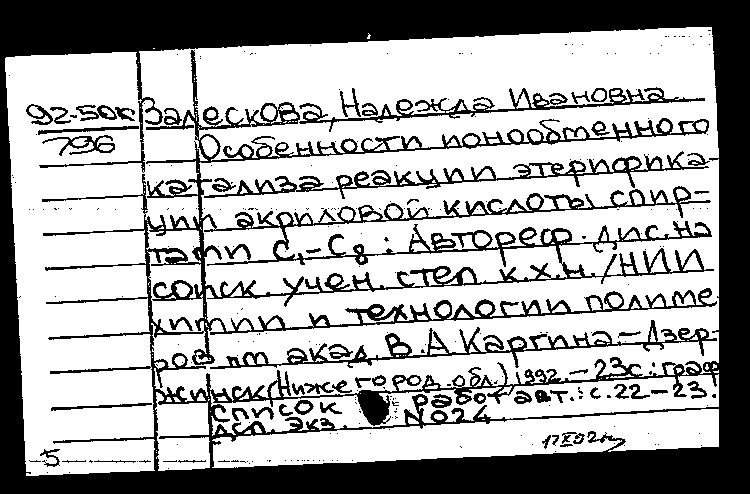 92-50к Залескова, Надежда Ивановна
796 Особенности ионообменного
катализа реакции этерифика-
ции акриловой кислоты спир-
тами C₁-C₈ : Автореф. дис. на
соиск. учен. степ. к.х.н. / НИИ
химии и технологии полиме
ров им акад. В. А. Каргина.- Дзер-
жинск (Нижегород. обл.), 1992. - 23с.: граф
список работ авт.: с. 22-23.
дсп. экз. N024
5